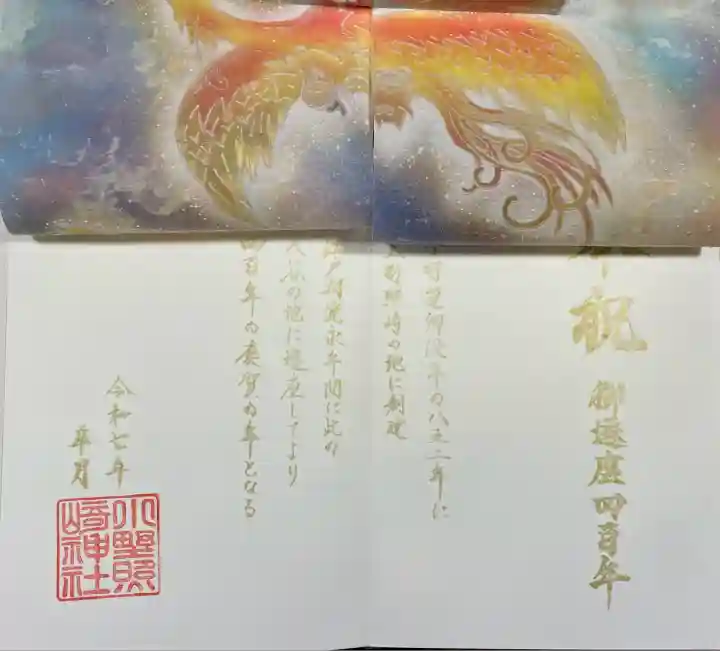 奉祝
御遷座四百年
野篁卿没年の八五二年に
照崎の地に創建
江戸期寛永年間に此の
入谷の地に遷座してより
四百年の慶賀の年となる
令和七年
皐月
小野照
崎神社